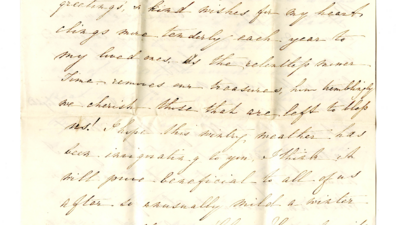 greetings, & kind wishes for my heart
clings more tenderly each year to
my loved ones. As the relentless
Time removes our treasures, how tremblingly
we cherish those that are left to bless
us! I hope this wintry weather has
been invigorating to you. I think it
will prove beneficial to all of us
after so unusually mild a winter